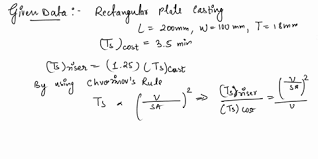 Given Data :- Rectangular Plate Casting
L = 200mm, W = 100 mm, T = 18mm
(Ts)cast = 3.5 min
(Ts)riser = (1.25) (Ts)cast
By using Chvorinov's Rule
Ts ∝ (V/SA)² ⇒ (Ts)riser/(Ts)cas = (V/SA)²/V